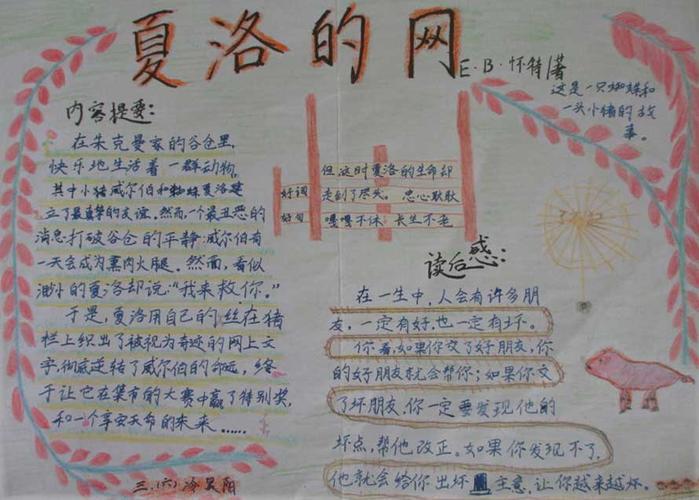 夏洛的网
E.B.怀特著
这是一只蜘蛛和
一头小猪的故
事。
内容提要：
在朱克曼家的谷仓里，
快乐地生活着一群动物，
其中小猪威尔伯和蜘蛛夏洛建
立了最真挚的友谊。然而，一个最丑恶的
消息打破谷仓的平静：威尔伯有
一天会成为熏肉火腿。然而，看似
渺小的夏洛却说：“我来救你。”
于是，夏洛用自己的丝在猪
栏上织出了被视为奇迹的网上文
字，彻底逆转了威尔伯的命运，终
于让它在集市的大赛中赢了特别奖，
和一个享安天命的未来……
三.(六) 冷昊阳
好词
好句
但这时夏洛的生命却
走到了尽头。 忠心耿耿
喋喋不休 长生不老
读后感：
在一生中，人会有许多朋
友，一定有好，也一定有坏。
你看，如果你交了好朋友，你
的好朋友就会帮你；如果你交
了坏朋友，你一定要发现他的
坏点，帮他改正。如果你发现不了，
他就会给你出坏主意，让你越来越坏。